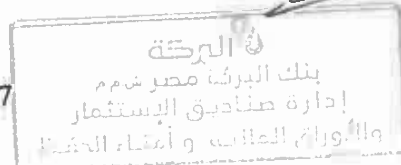 البركة
بنك البركة مصر ش.م.م
إدارة صناديق الإستثمار
والأوراق المالية و أمناء الحفظ
7